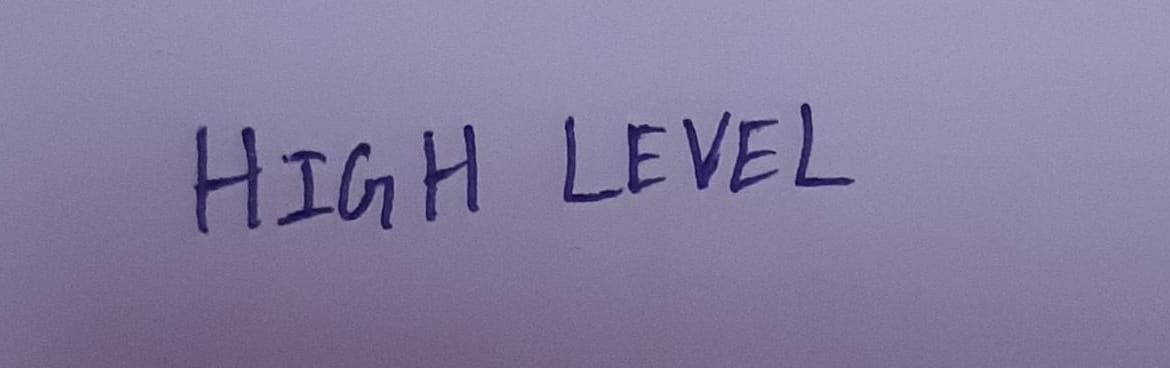 HIGH LEVEL